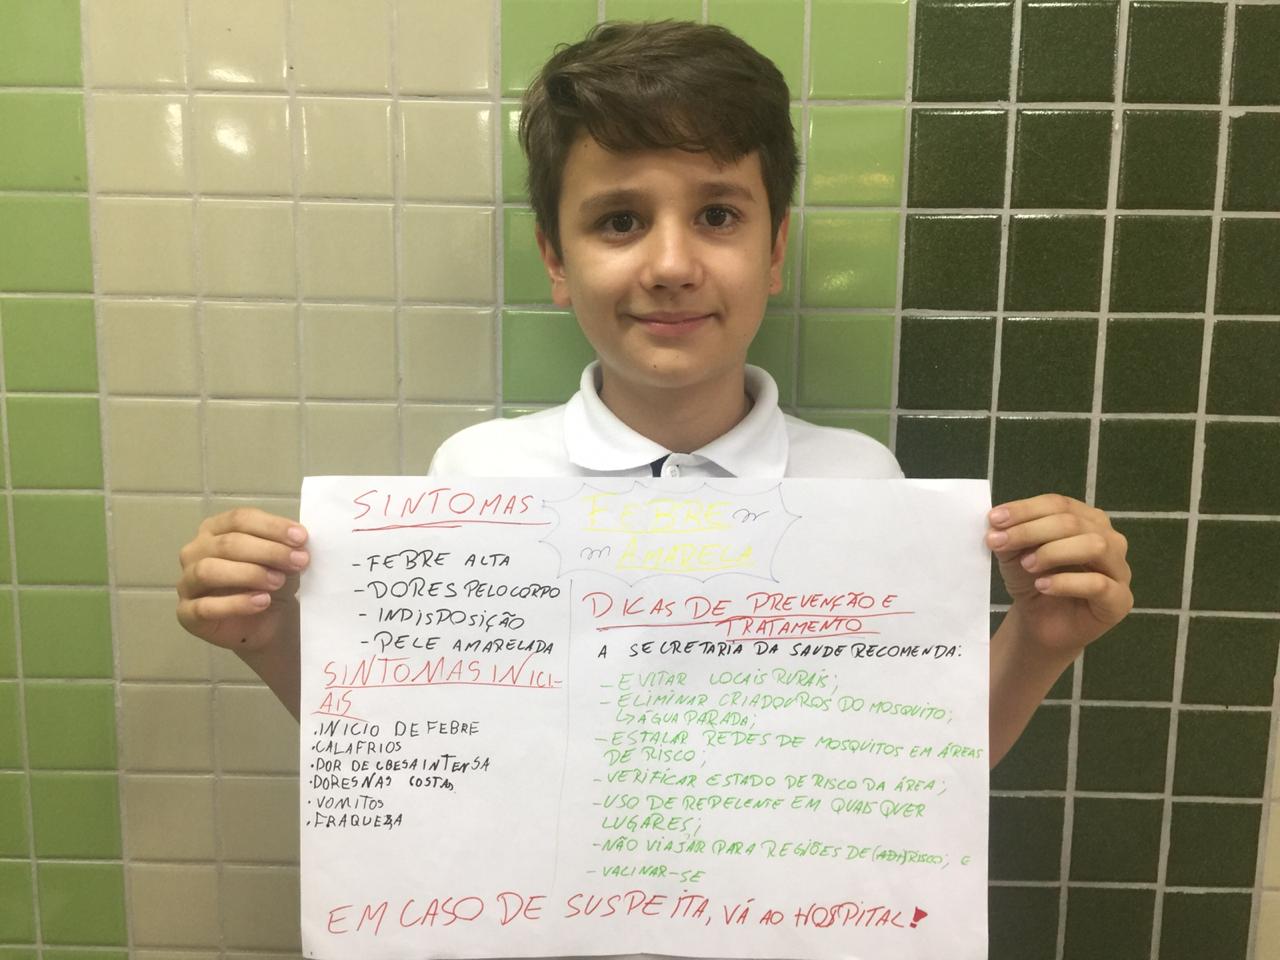 FEBRE
AMARELA
SINTOMAS
- FEBRE ALTA
- DORES PELO CORPO
- INDISPOSIÇÃO
- PELE AMARELADA
SINTOMAS INICI-
AIS
.INICIO DE FEBRE
.CALAFRIOS
.DOR DE CBESA INTENSA
.DORES NAS COSTAS
.VOMITOS
.FRAQUEZA
DICAS DE PREVENÇÃO E
TRATAMENTO
A SECRETARIA DA SAUDE RECOMENDA:
- EVITAR LOCAIS RURAIS;
- ELIMINAR CRIADOUROS DO MOSQUITO;
↳ ÁGUA PARADA;
- ESTALAR REDES DE MOSQUITOS EM ÁREAS
DE RISCO;
- VERIFICAR ESTADO DE RISCO DA ÁREA;
- USO DE REPELENTE EM QUAISQUER
LUGARES;
- NÃO VIAJAR PARA REGIÕES DE RISCO; E
- VALINAR-SE
EM CASO DE SUSPEITA, VÁ AO HOSPITAL!